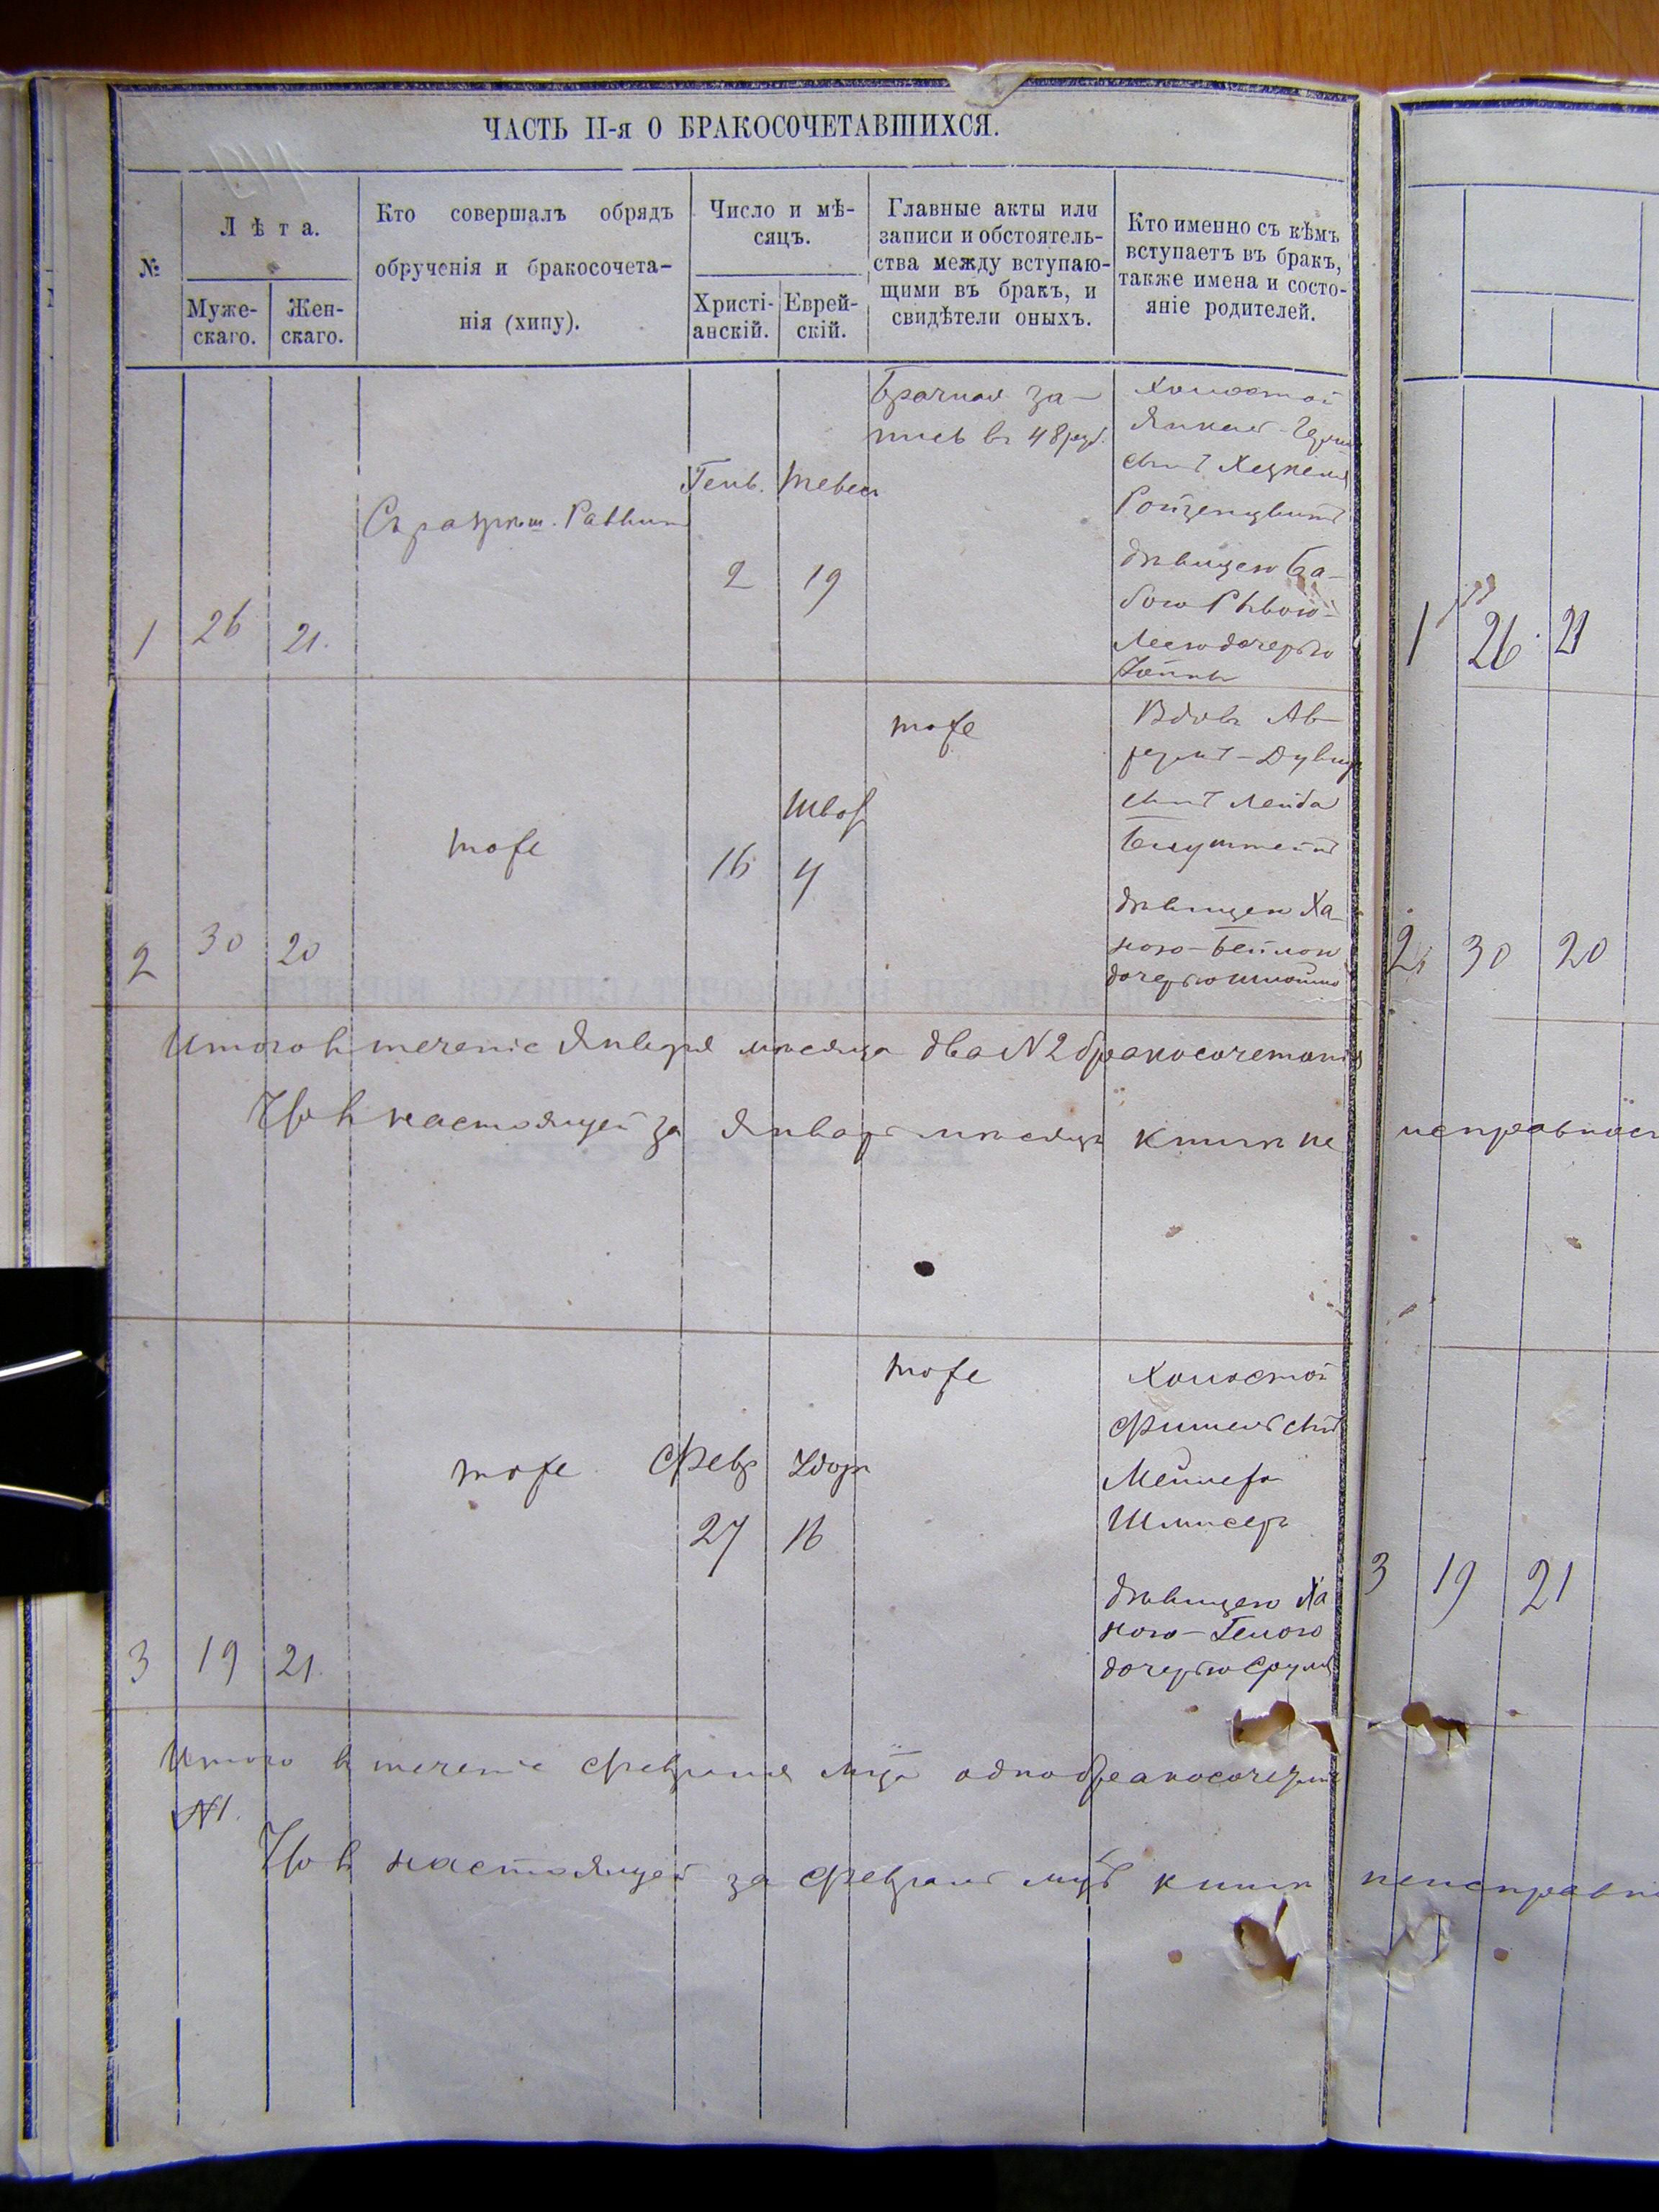 ЧАСТЬ II-я О БРАКОСОЧЕТАВШИХСЯ.
№
Лѣта.
Муже-
скаго.
Жен-
скаго.
Кто совершалъ обрядъ
обрученія и бракосочета-
нія (хипу).
Число и мѣ-
сяцъ.
Христі-
анскій.
Еврей-
скій.
Главные акты или
записи и обстоятель-
ства между вступаю-
щими въ бракъ, и
свидѣтели оныхъ.
Кто именно съ кѣмъ
вступаетъ въ бракъ,
также имена и состо-
яніе родителей.
1
26
21.
Съ разрѣш. Раввин
Генв.
2
Тевес
19
Брачная за-
пись въ 48 руб.
Холостой
сынъ Хацкеля
дѣвицею Ба-
бою Рывою-
Леею дочерью
1 26 21
2
30
20
тоже
16
Шват
4
тоже
Вдовъ Ав-
румъ-Дувид
сынъ Лейба
дѣвицею Ха-
ною-Бейлою
дочерью
2 30 20
Итого въ теченіе Января мѣсяца два №2 бракосочетанія
Что въ настоящей за Январь мѣсяцъ книгѣ не
3
19
21.
тоже
Февр
27
Адоръ
16
тоже
Холостой
Фишель сынъ
дѣвицею Ха
ною-Гелою
дочерью Сруля
3 19 21
Итого въ теченіе Февраля мца одно бракосочетаніе
№1.
Что въ настоящей за Февраль мцъ книгѣ